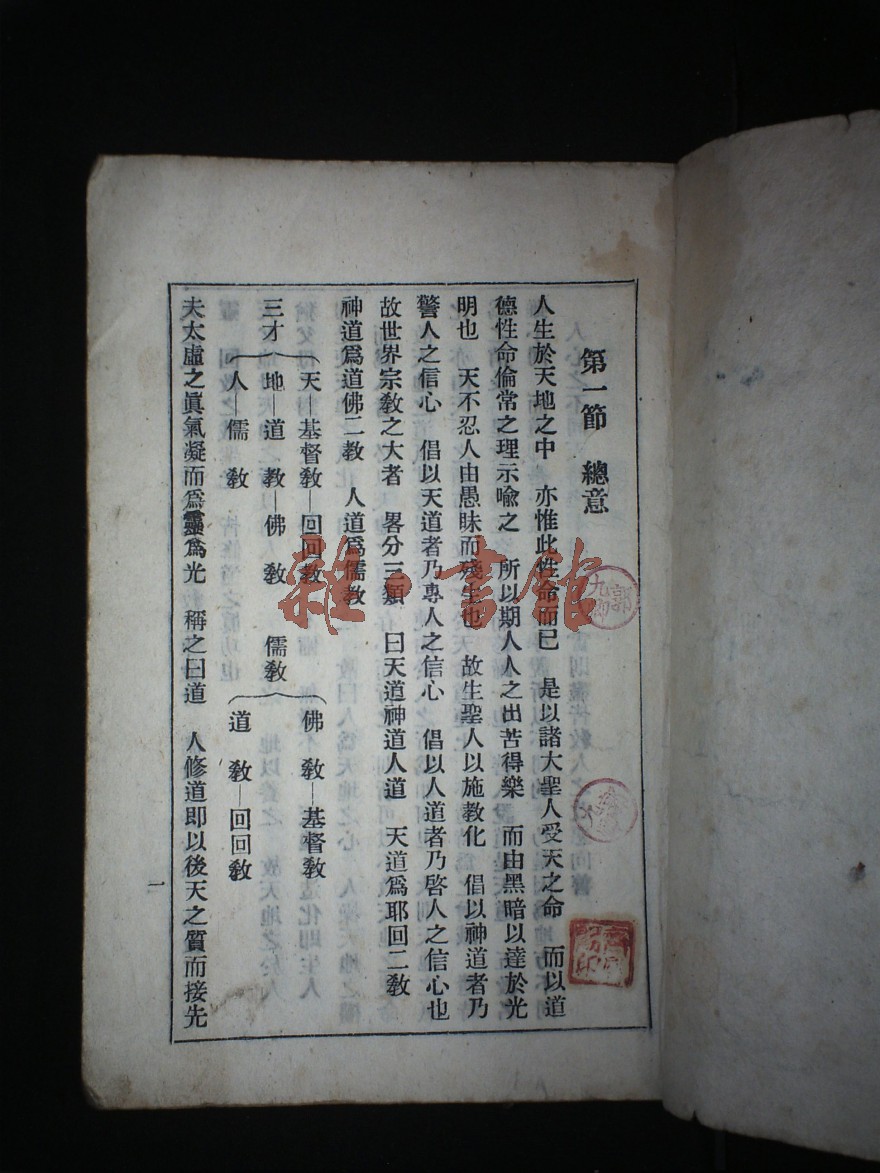 第一節 總意
人生於天地之中 亦惟此性命而已 是以諸大聖人受天之命 而以道
德性命倫常之理示喩之 所以期人人之出苦得樂 而由黑暗以達於光
明也 天不忍人由愚昧而殘生也 故生聖人以施教化 倡以神道者乃
警人之信心 倡以天道者乃專人之信心 倡以人道者乃啓人之信心也
故世界宗教之大者 畧分三類 曰天道神道人道 天道爲耶回二教
神道爲道佛二教 人道爲儒教
天—基督教—回回教 佛教—基督教
三才 地—道教—佛教 儒教
人—儒教 道教—回回教
夫太虛之眞氣凝而爲靈爲光 稱之曰道 人修道即以後天之質而接先
一
雜·書館
郭
九